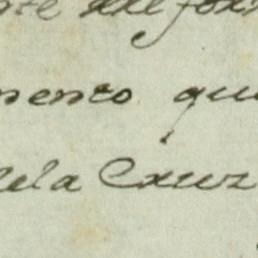 nte del fon
mento qu
dela Cruz